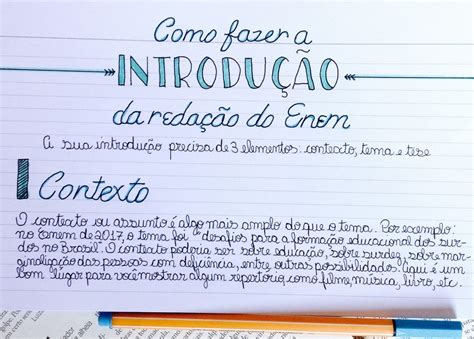 Como fazer a
INTRODUÇÃO
da redação do Enem
A sua introdução precisa de 3 elementos: contexto, tema e tese
Contexto
O contexto ou assunto é algo mais amplo do que o tema. Por exemplo:
no Enem de 2017, o tema foi "desafios para a formação educacional dos sur-
dos no Brasil". O contexto poderia ser sobre educação, sobre surdez, sobre mar-
ginalização das pessoas com deficiência, entre outras possibilidades. Aqui é um
bom lugar para você mostrar algum repertório, como filme, música, livro, etc.